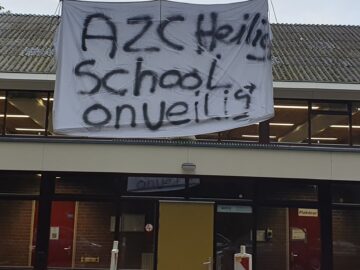 AZC Heilig
School
onveilig